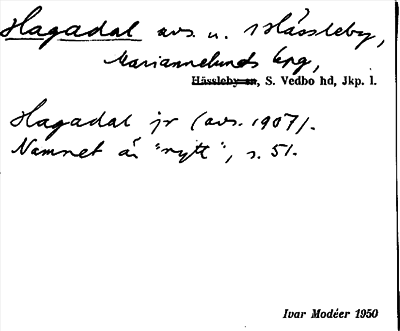 Hagadal avs. u. Hässleby,
Mariannelunds kpg,
Hässleby sn, S. Vedbo hd, Jkp. l.
Hagadal jr (avs. 1907).
Namnet är "nytt", s. 51.
Ivar Modéer 1950